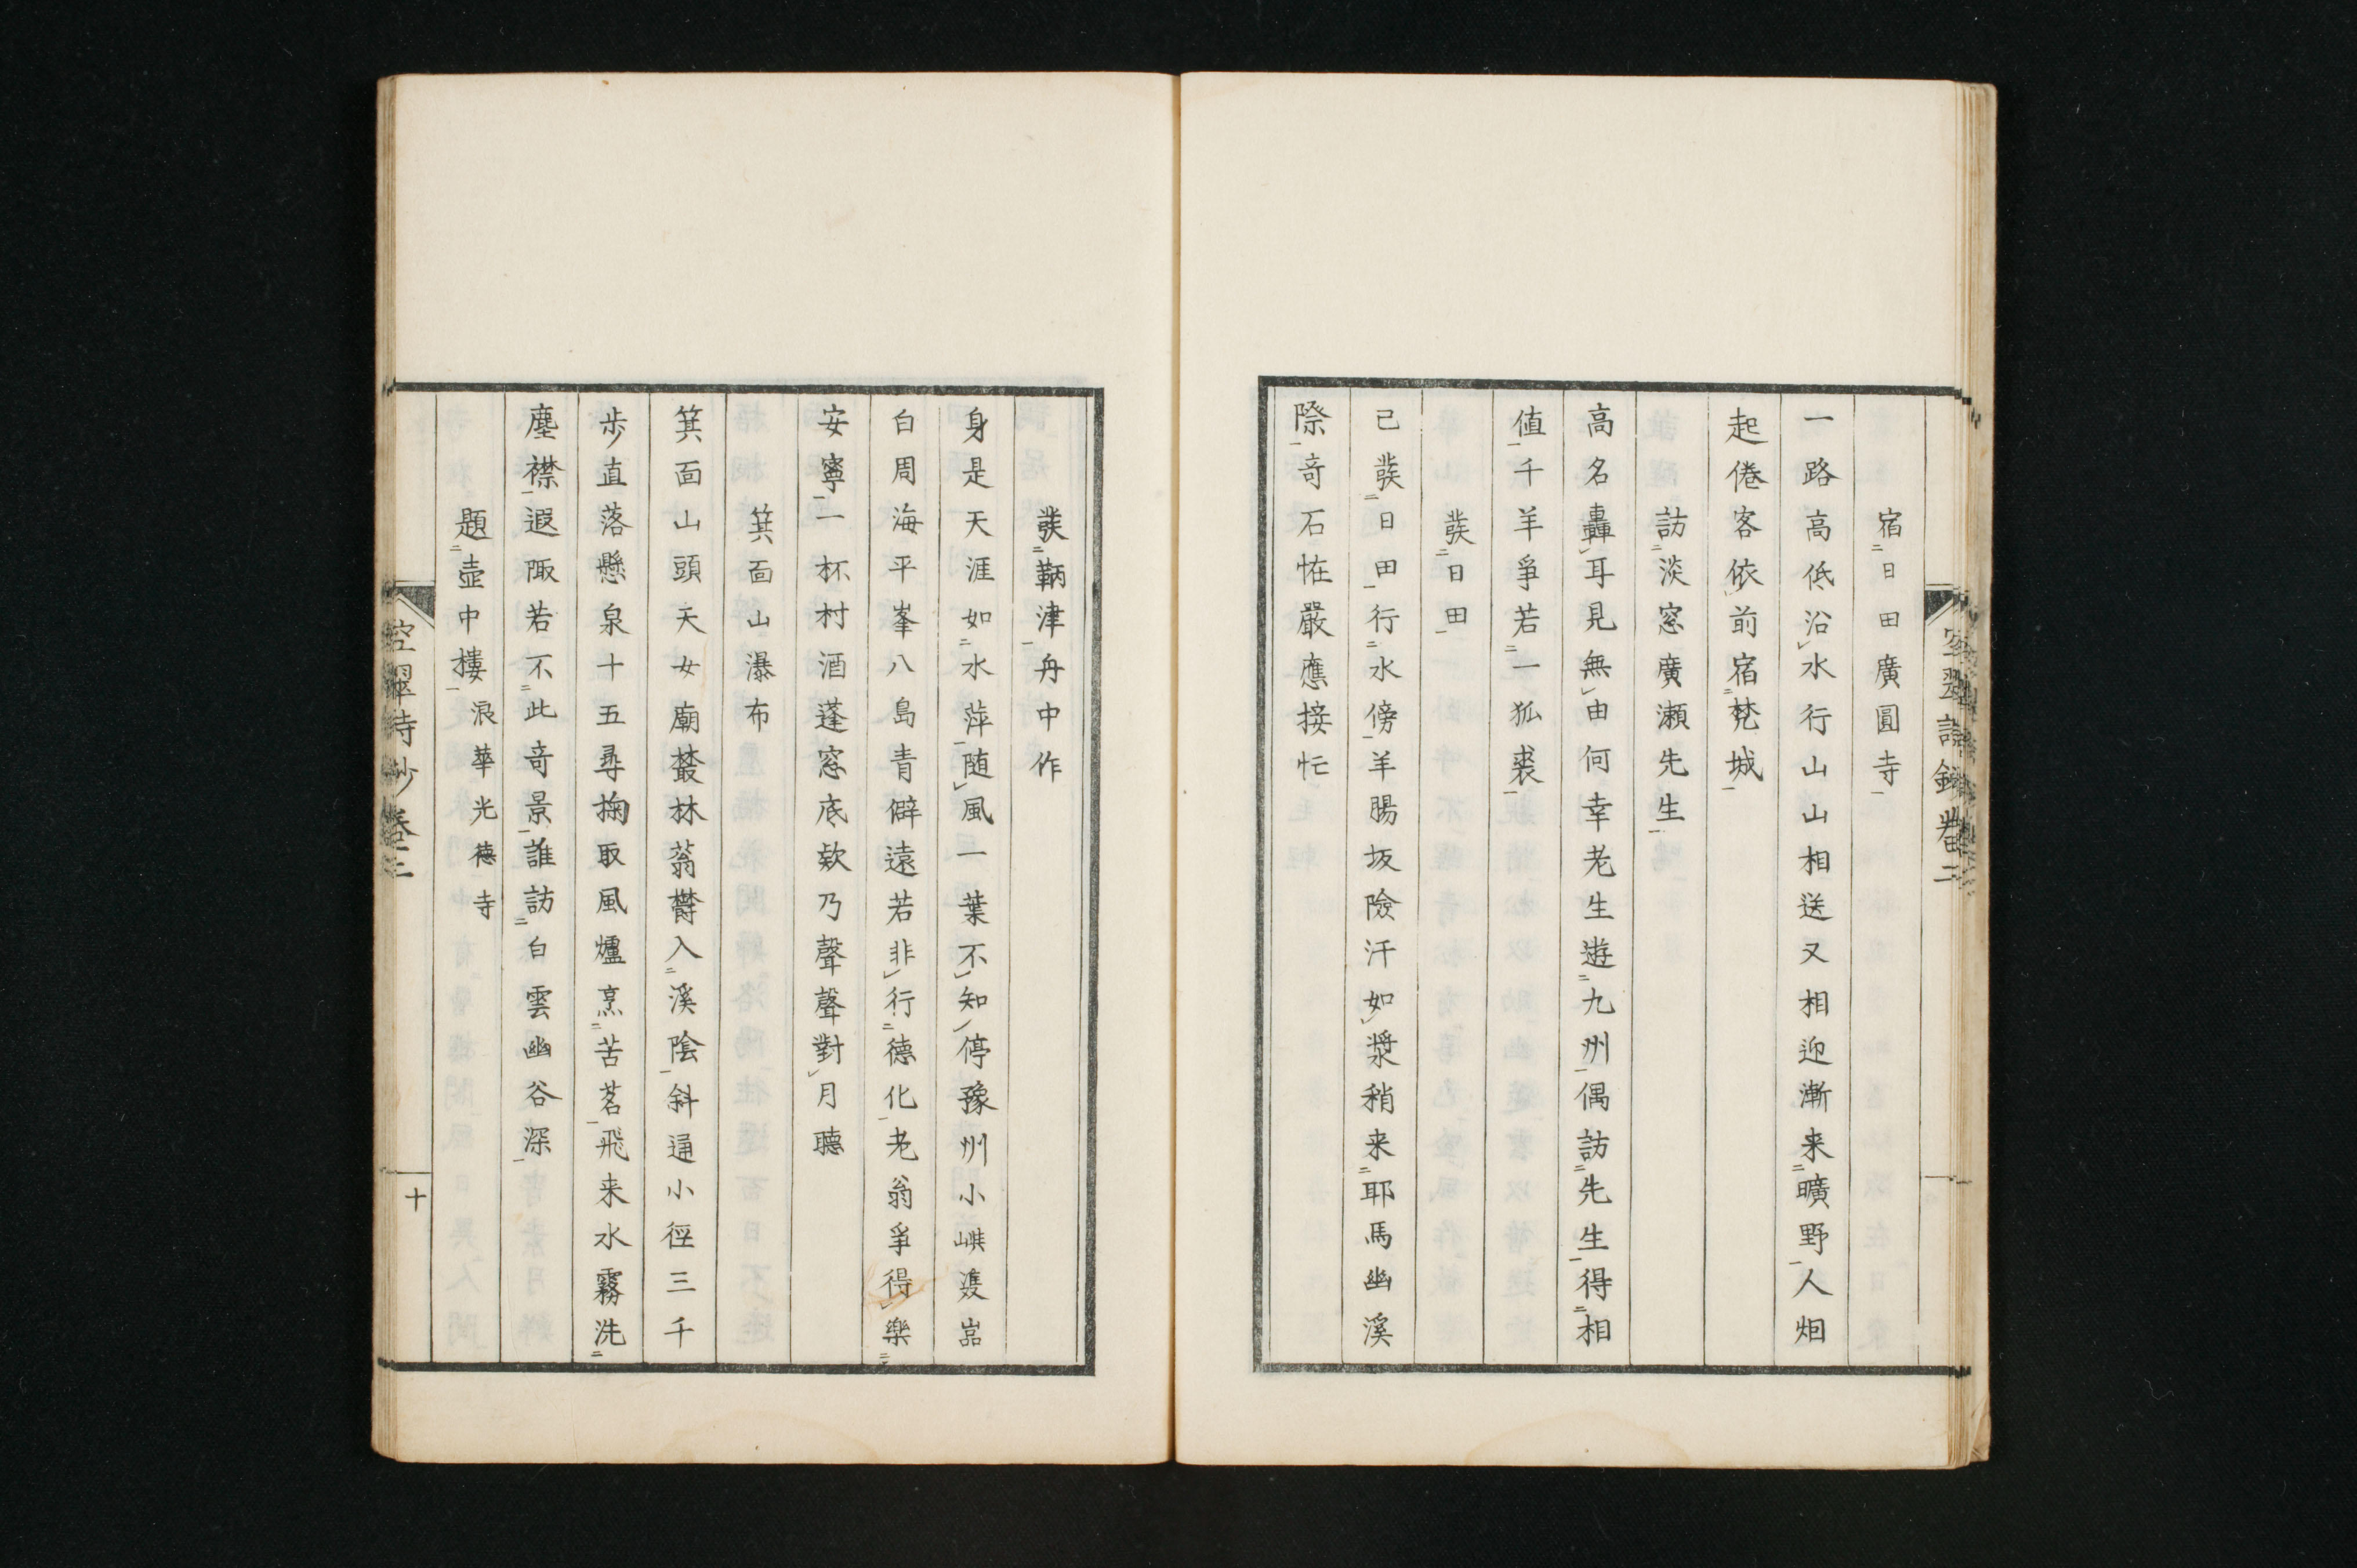 宿日田廣圓寺
一路高低沿水行山山相送又相迎漸来曠野人烟
起倦客依前宿梵城
訪淡窓廣瀬先生
高名轟耳見無由何幸老生遊九州偶訪先生得相
値千羊爭若一狐裘
發日田
已發日田行水傍羊腸坂險汗如漿稍来耶馬幽溪
際奇石恠嚴應接忙
發鞆津舟中作
身是天涯如水萍随風一葉不知停豫州小嶼
白周海平峯八島青僻遠若非行德化老翁爭得樂
安寧一杯村酒蓬窓底欸乃聲聲對月聽
箕面山瀑布
箕面山頭天女廟叢林蓊欝入溪陰斜通小徑三千
歩直落懸泉十五尋掬取風爐烹苦茗飛来水霧洗
塵襟遐陬若不此奇景誰訪白雲幽谷深
題壺中樓 浪華光德寺
空翠詩鈔卷二
十